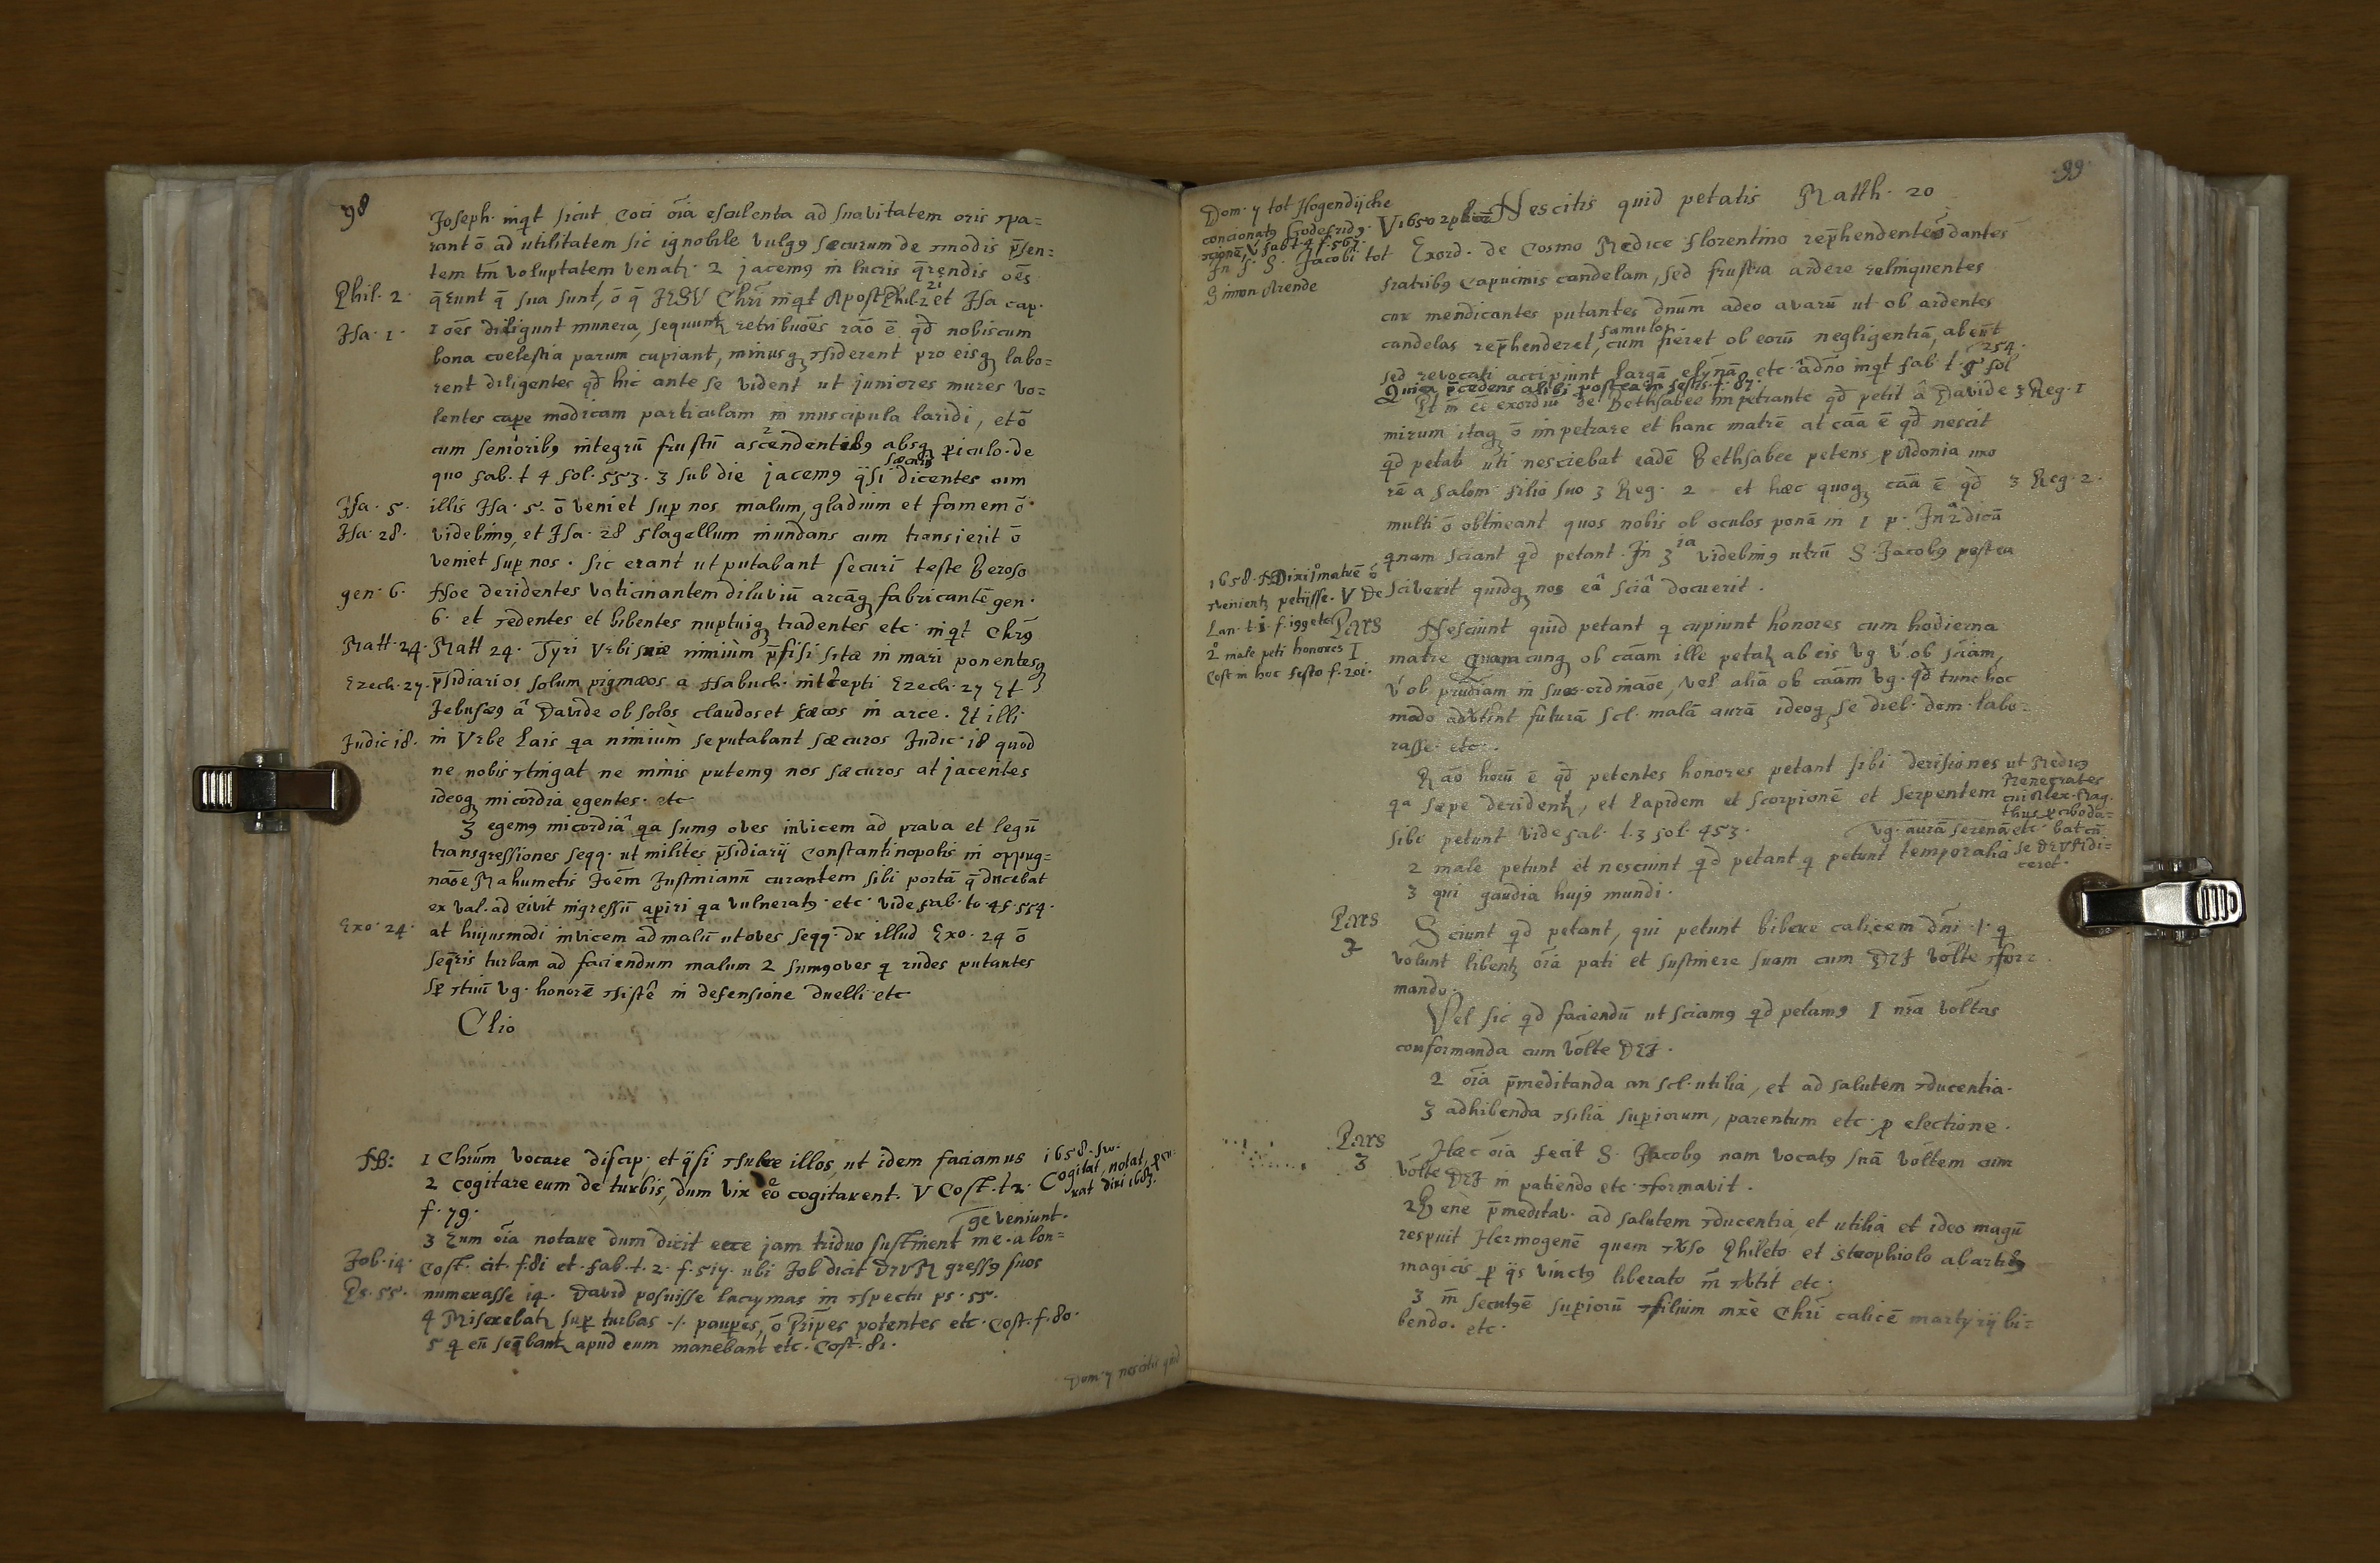 98
Joseph. inqt sicut coci oīa esculenta ad suavitatem oris ꝯpa=
rant ō ad utilitatem sic ignobile vulgꝯ sæcurum de ꝯmodis p̄sen=
tem tm̄ voluptatem venatr. 2 jacemꝯ in lucris q̄rendis oēs
Phil. 2. q̄runt q̄ sua sunt, ō q̄ JESU Chrī inqt Apost Phil. 2 et Isa cap.
21
Isa. 1. 1 oēs diligunt munera, sequuntr retribuōēs rāo ē qd nobiscum
bona coelestia parum cupiant, minusq ꝯsiderent pro eisq labo=
rent diligentes qd hic ante se vident ut juniores mures vo=
lentes cape modicam particulam in muscipula laridi, et ō
cum senioribꝯ integrū frustū ascendentibꝯ absq piculo. de
quo fab. t 4 fol. 553. 3 sub die jacemꝯ qsi dicentes cum
sæcuri
Isa. 5. illis Isa. 5. ō veniet sup nos malum, gladium et famem ō
Isa. 28. videbimꝯ, et Isa. 28 flagellum inundans cum transierit ō
veniet sup nos. sic erant ut putabant securi teste Beroso
gen. 6. Noe deridentes vaticinantem diluviū arcāq fabricantē gen.
6. et ꝯedentes et bibentes nuptuiq tradentes etc. inqt Chrꝯ
Matt. 24. Matt 24. Tyri Urbi suæ nimium p̄fisi sitæ in mari ponentesq
Ezech. 27. p̄sidiarios solum pigmæos a Nabuch. intercepti Ezech. 27 Et
Jebusæꝯ â Davide ob solos claudos et cæcos in arce. Et illi
Judic 18. in Urbe Lais qa nimium se putabant sæcuros Judic. 18 quod
ne nobis ꝯtingat ne nimis putemꝯ nos sæcuros at jacentes
ideoq micordia egentes. etc
3 egemꝯ micordiâ qa sumꝯ oves invicem ad prava et legū
transgressiones seqq. ut milites p̄sidiarij Constantinopolis in oppug=
naōe Mahumetis Joēm Justinianū curantem sibi portā q̄ ducebat
ex val. ad civit ingressū apiri qa vulneratꝯ. etc. vide fab. to. 4 f. 554.
Exo. 24. at hujusmodi invicem ad malū ut oves seqq. dr illud Exo. 24 ō
seq̄ris turbam ad faciendum malum 2 sumꝯ oves q rudes putantes
sp ꝯtinū vg. honorē ꝯsistê in defensione duelli etc
Clio
NB: 1 Chrūm vocare discip: et qsi ꝯsulere illos, ut idem faciamus
2 cogitare eum de turbis, dum vix eō cogitarent. V Cost. t 2.
f. 79.
1658. sw.
Cogitat, notat, 
rat dixi 1683.
ge veniunt.
3 Eum oīa notare dum dicit ecce jam triduo sustinent me. a lon=
Job. 14. Cost. cit. f. 81 et. fab. t. 2. f. 517. ubi Job dicit DEUM gressꝯ suos
Ps. 55. numerasse 14. David posuisse lacrymas in ꝯspectu ps. 55.
4 Miserebatr sup turbas ./. paupes, ō Prīpes potentes etc. Cost. f. 80.
5 q eū seq̄bantr apud eum manebant etc. Cost. 81.
Dom. 7 nescitis quid
99.
Dom. 7 tot Hogendijcke
concionatꝯ Godefridꝯ.
V fab t. 4 f. 567.
In f. S. Jacobi tot
Simon Arende
V 1650 Nescitis quid petatis Matth. 20
Exord. de Cosmo Medice Florentino rep̄hendente ō dantes
fratribꝯ Capucinis candelam, sed frustra ardere relinquentes
cur mendicantes putantes dnūm adeo avarū ut ob ardentes
candelas rep̄henderet, cum fieret ob eorū negligentiā, abeūt
famulor.
sed revocati accipiunt largā elynā etc. âdn̄o inqt fab. t. 5 fol
254.
Quia p̄cedens alibi postea in festis. f. 87.
Et m̄ ēē exordiū de Bethsabee impetrante qd petit â Davide 3 Reg. 1
mirum itaq ō impetrare et hanc matrē at cāa ē qd nescit
qd petat uti nesciebat eadē Bethsabee petens p Adonia uxo
rē a Salom. filio suo 3 Reg. 2. et hæc quoq cāa ē qd 3 Reg. 2.
multi ō obtineant quos nobis ob oculos ponā in 1 p. In 2â dicā
qunam sciant qd petant. In 3ia videbimꝯ utrū S. Jacobꝯ postea
sciverit quidq nos eâ sciâ docuerit.
1658. Dixi matrē ō
ꝯvenientr petijsse. V De
Lan. t. 1. f. 199 etc
2o male peti honores 1
Cost in hoc festo f. 201.
Pars
1
Nesciunt quid petant q cupiunt honores cum hodierna
matre quamcunq ob cāam ille petatr ab eis vg v ob sciam,
v ob prudiam in sues ordināoe, vel aliā ob cāam vg. qd tunc hoc
modo advtint futurā scl. malā aurā ideoq se dieb. dom. labo=
rasse. etc.
Rāo horū ē qd petentes honores petant sibi derisiones ut Medicꝯ
Menecrates
qa sæpe deridentr, et Lapidem et Scorpionē et Serpentem cui Alex. Mag.
sibi petunt vide fab. t. 3 fol. 453. vg. aurā serenā etc.
thus p cibo da=
bat cū
se DEUM di=
ceret.
2 male petunt et nesciunt qd petant q petunt temporalia
3 qui gaudia hujꝯ mundi.
Pars
2
Sciunt qd petant, qui petunt bibere calicem dn̄i ./. q
volunt libentr oīa pati et sustinere suam cum DEI vōlte ꝯfor=
mando.
Vel sic qd faciendū ut sciamꝯ qd petamꝯ 1 nrā vōltas
conformanda cum vōlte DEI.
2 oīa p̄meditanda an scl. utilia, et ad salutem ꝯducentia.
3 adhibenda ꝯsilia supiorum, parentum etc. p electione.
Pars
3
Hæc oīa fecit S. Jacobꝯ nam vocatꝯ suā vōltem cum
vōlte DEI in patiendo etc. ꝯformavit.
2 Bene p̄meditav. ad salutem ꝯducentia, et utilia et ideo magū
respuit Hermogenē quem ꝯvso Phileto et strophiolo ab artibꝯ
magicis p qs vinctꝯ liberato m̄ ꝯvtit etc.
3 m̄ secutꝯ ē supiorū ꝯsilium mrè Chrī calicē martyrij bi=
bendo. etc.